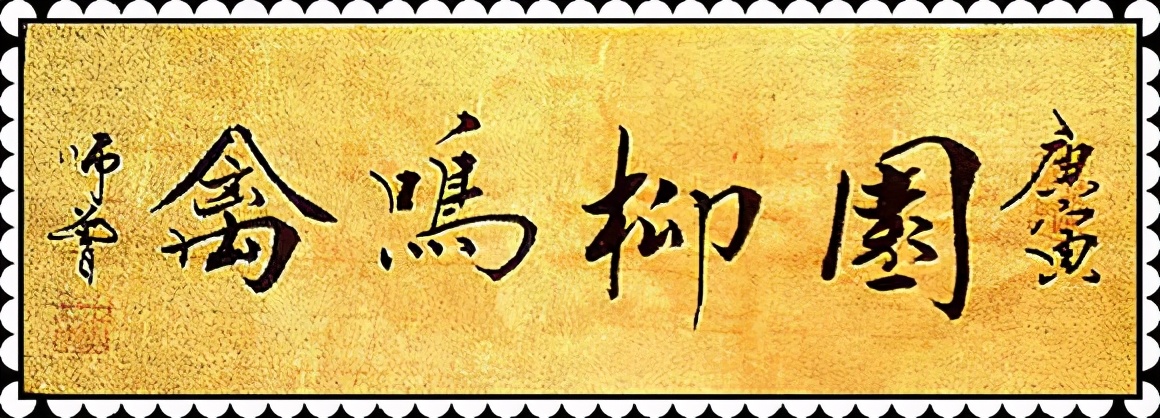 庚寅
園柳鳴禽
师曾